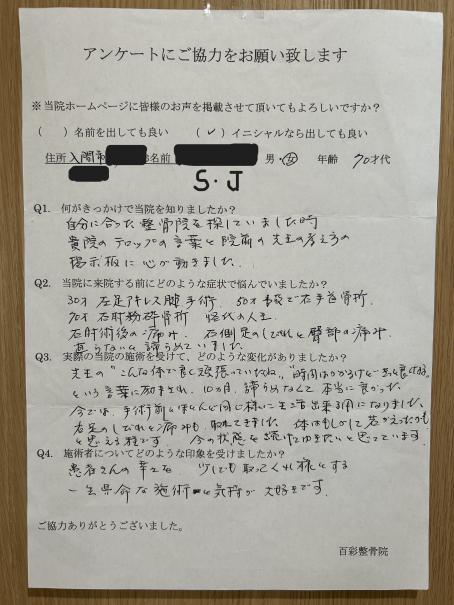 アンケートにご協力をお願い致します
※当院ホームページに皆様のお声を掲載させて頂いてもよろしいですか？
（　）名前を出しても良い　（✓）イニシャルなら出しても良い
住所 入間市　名前　男・女　年齢 70才代
S・J
Q1. 何がきっかけで当院を知りましたか？
自分に合った整骨院を探していました時
貴院のテロップの言葉と院前の先生の考え方の
掲示板に心が動きました。
Q2. 当院に来院する前にどのような症状で悩んでいましたか？
30才 左足アキレス腱手術. 50才 事故で右手首骨折.
70才 右肘粉砕骨折
右肘術後の痛み. 右側足のしびれと臀部の痛み.
諦めていました
Q3. 実際の当院の施術を受けて、どのような変化がありましたか？
先生の"こんな体で良く頑張っていたね,, "時間はかかるけど
という言葉に励まされ、10ヵ月, 諦めなくて本当に良かった.
今では, 手術前とほとんど同じ様に生活出来る用になりました.
右足のしびれと痛みも, 取れてきました. 体はもしかして若がえったかも
と思える程です. 今の状態を続けてゆきたいと思っています.
Q4. 施術者についてどのような印象を受けましたか？
患者さんの辛さを 少しでも取ってくれ様とする
一生県命な施術と気持が大好きです.
ご協力ありがとうございました。
百彩整骨院